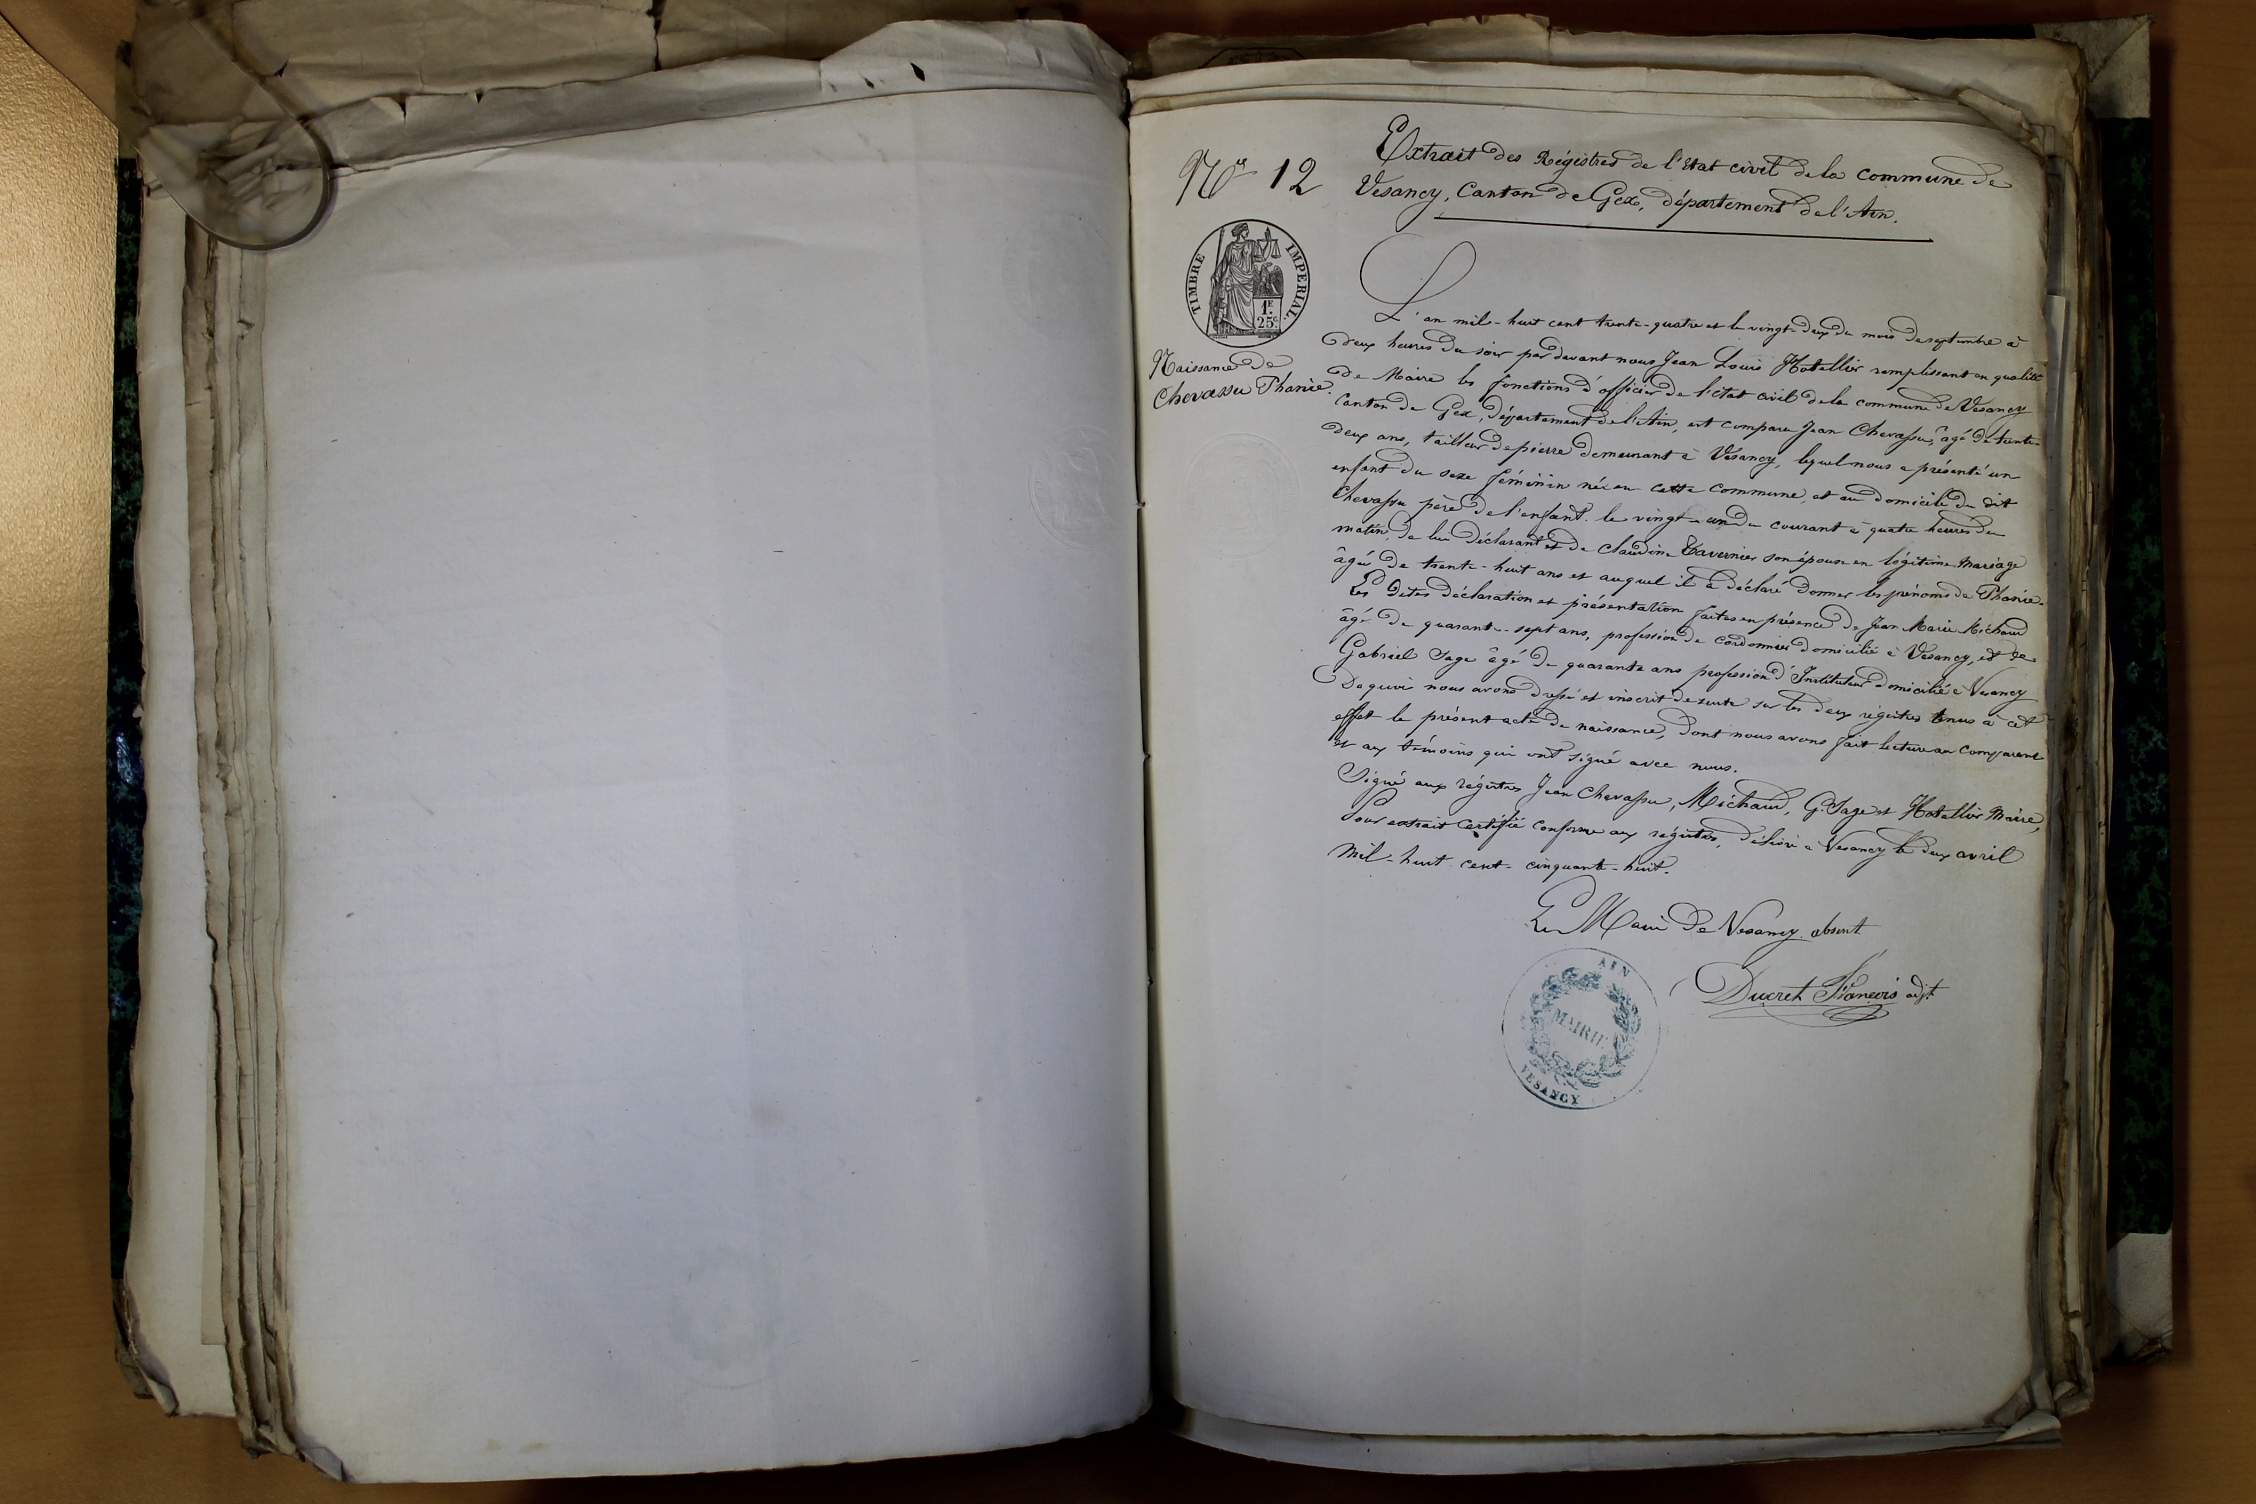 Nº 12
Extrait des Régistres de l'Etat civil de la commune de
Vesancy, Canton de Gex, département de l'Ain.
TIMBRE IMPERIAL
1F.
25c
Naissance de
Chevassu Phanie.
L'an mil-huit cent trente-quatre et le vingt-deux du mois de septembre à
deux heures du soir par devant nous Jean Louis Hotellier remplissant en qualité
de Maire les fonctions d'officier de l'état civil de la commune de Vesancy
canton de Gex, département de l'Ain, est comparu Jean Chevassu, âgé de trente-
deux ans, tailleur de pierre demeurant à Vesancy, lequel nous a présenté un
enfant du sexe féminin né en cette commune, et au domicile du dit
Chevassu père de l'enfant. le vingt-un du courant à quatre heures du
matin, de lui déclarant et de claudine Tavernier son épouse en légitime mariage
âgée de trente-huit ans et auquel il a déclaré donner les prénoms de Phanie.
Les dites déclaration et présentation faites en présence de Jean Marie Michaud
âgé de quarante-sept ans, profession de cordonnier domicilié à Vesancy, et de
Gabriel Sage âgé de quarante ans profession d'Instituteur domicilié à Vesancy
De quoi nous avons dressé et inscrit de suite sur les deux régistres tenus à cet
effet le présent acte de naissance, dont nous avons fait lecture au comparant
et aux témoins qui ont signé avec nous.
Signé aux régistres Jean Chevassu, Michaud, G. Sage et Hotellier Maire,
Pour extrait certifié conforme aux régistres, délivré à Vesancy le deux avril
mil-huit cent-cinquante-huit.
Le Maire de Vesancy absent
Ducret François adjt
AIN
MAIRIE
VESANCY